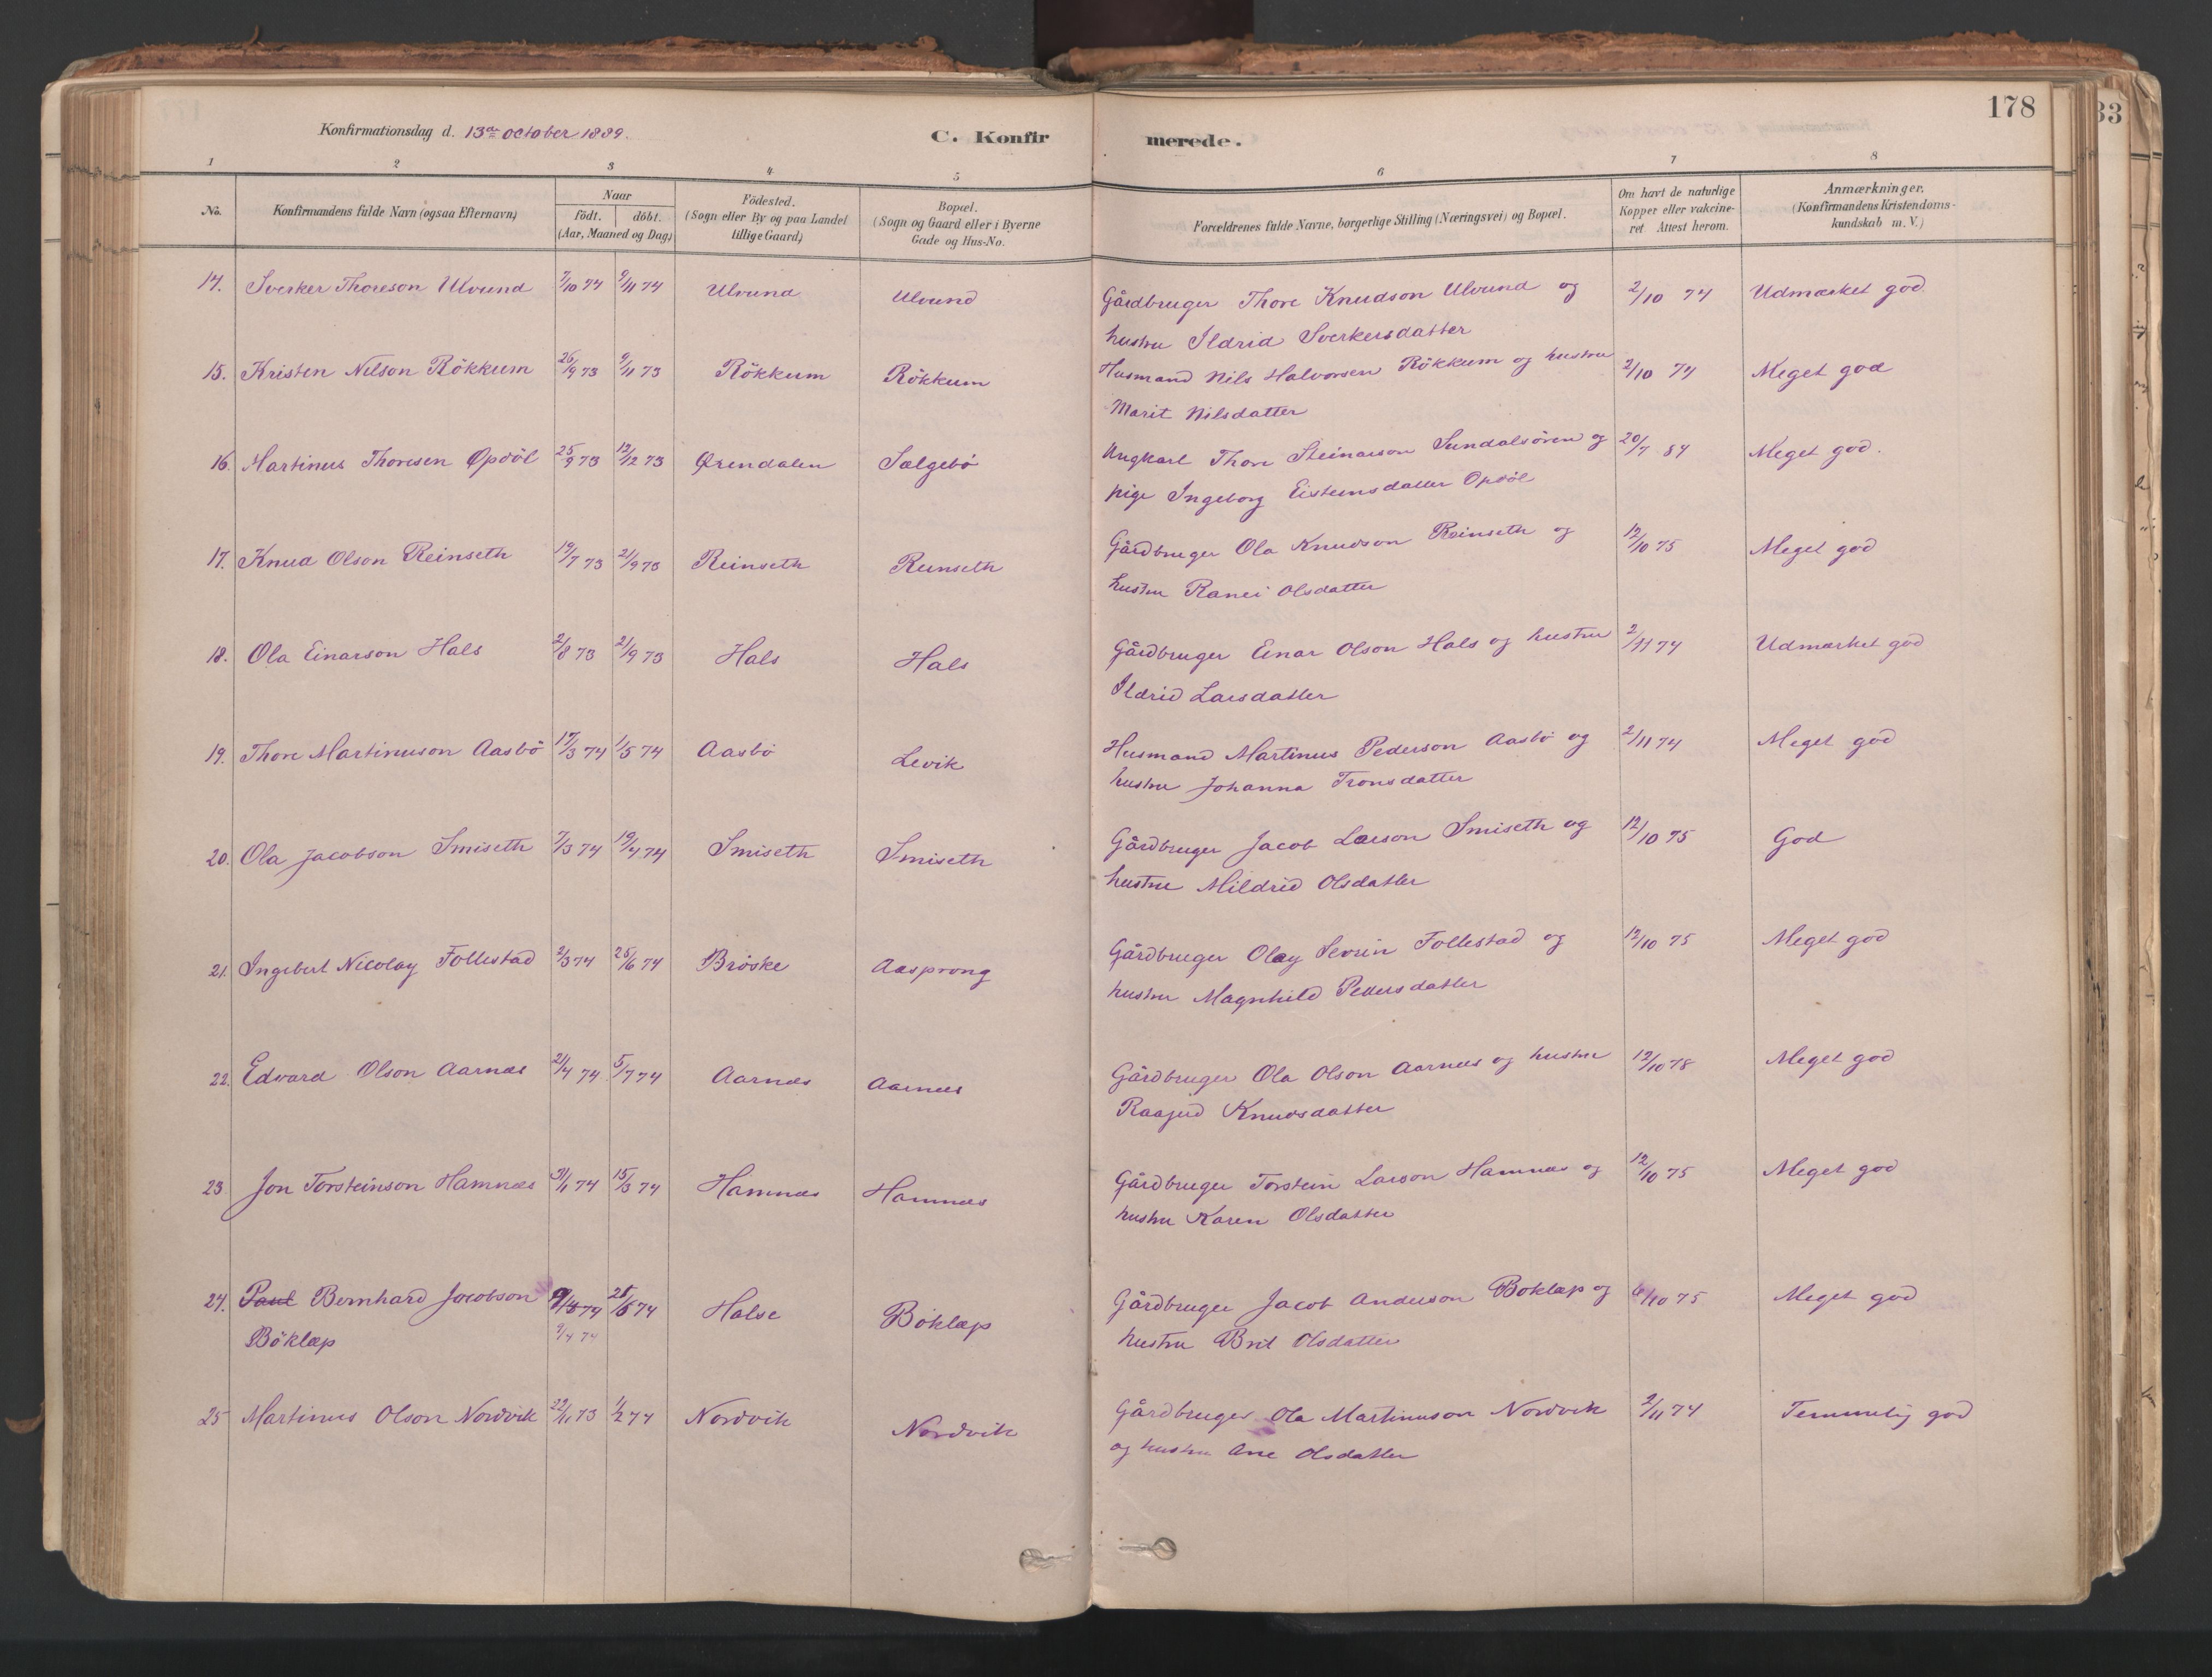 178
33
Konfirmationsdag d. 13de October 1889.
C. Konfirmerede.
1 2 3 4 5 6 7 8
No.
Konfirmandens fulde Navn (ogsaa Efternavn)
Naar
födt. döbt.
(Aar, Maaned og Dag)
Födested.
(Sogn eller By og paa Landet
tillige Gaard)
Bopæl.
(Sogn og Gaard eller i Byerne
Gade og Hus-No.
Forældrenes fulde Navne, borgerlige Stilling (Næringsvei) og Bopæl.
Om havt de naturlige
Kopper eller vakcine-
ret Attest herom.
Anmærkninger.
(Konfirmandens Kristendoms-
kundskab m. V.)
14. Sverker Thoreson Ulvund 7/10 74 9/11 74 Ulvund Ulvund Gårdbruger Thore Knudson Ulvund og 2/10 74 Udmærket god.
hustru Ildrid Sverkersdatter
15. Kristen Nilson Rökkum 26/9 73 9/11 73 Rökkum Rökkum Husmand Nils Halvorsen Rökkum og hustru 2/10 74 Meget god
Marit Nilsdatter
16. Martinus Thoresen Opdöl 25/9 73 12/12 73 Ørendalen Salgebö Ungkarl Thore Steinarson Sundalsören og 20/7 84 Meget god.
pige Ingeborg Eisteinsdatter Opdöl
17. Knud Olson Reinseth 19/7 73 21/9 73 Reinseth Reinseth Gårdbruger Ola Knudson Reinseth og 12/10 75 Meget god
hustru Ranei Olsdatter
18. Ola Einarson Hals 2/8 73 21/9 73 Hals Hals Gårdbruger Einar Olson Hals og hustru 2/11 74 Udmærket god
Ildrid Larsdatter
19. Thore Martinuson Aasbö 17/3 74 1/5 74 Aasbö Levik Husmand Martinus Pederson Aasbö og 2/11 74 Meget god
hustru Johanna Tronsdatter
20. Ola Jacobson Smiseth 7/3 74 19/4 74 Smiseth Smiseth Gårdbruger Jacob Larson Smiseth og 12/10 75 God
hustru Mildrid Olsdatter
21. Ingebert Nicolay Follestad 2/3 74 25/6 74 Bröske Aasprong Gårdbruger Olay Sevrin Follestad og 12/10 75 Meget god
hustru Magnhild Pettersdatter
22. Edvard Olson Aarnæs 21/4 74 5/7 74 Aarnæs Aarnæs Gårdbruger Ola Olson Aarnæs og hustru 12/10 78 Meget god
Raagnd Knudsdatter
23. Jon Torsteinson Hamnæs 31/1 74 15/3 74 Hamnæs Hamnæs Gårdbruger Torstein Larson Hamnæs og 12/10 75 Meget god
hustru Karen Olsdatter
24. Paul Bernhard Jacobson 28/6 74 Halse Böklæp Gårdbruger Jacob Anderson Böklæp og /10 75 Meget god
Böklæp 9/4 74 hustru Brit Olsdatter
25 Martinus Olson Nordvik 22/11 73 1/2 74 Nordvik Nordvik Gårdbruger Ola Martinuson Nordvik 2/11 74 Temmelig god
og hustru Ane Olsdatter